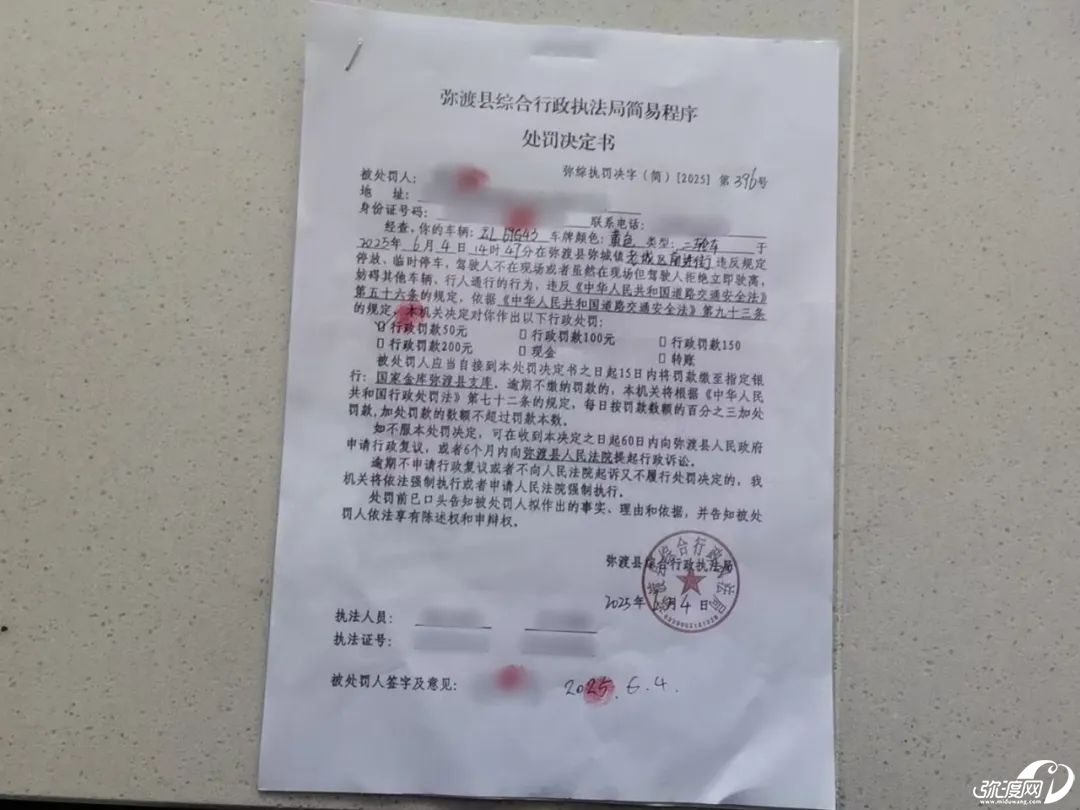 弥渡县综合行政执法局简易程序
处罚决定书
弥综执罚决字（简）[2025] 第396号
被处罚人：
地 址：
身份证号码： 联系电话：
经查，你的车辆： 车牌颜色：黄色 类型：二轮车 于
2025年6月4日14时47分在弥渡县弥城镇老城区 违反规定
停放、临时停车，驾驶人不在现场或者虽然在现场但驾驶人拒绝立即驶离，
妨碍其他车辆、行人通行的行为，违反《中华人民共和国道路交通安全法》
第五十六条的规定，依据《中华人民共和国道路交通安全法》第九十三条
的规定，本机关决定对你作出以下行政处罚：
行政罚款50元 □ 行政罚款100元 □ 行政罚款150
□ 行政罚款200元 □ 现金 □ 转账
被处罚人应当自接到本处罚决定书之日起15日内将罚款缴至指定银
行：国家金库弥渡县支库，逾期不缴纳罚款的，本机关将根据《中华人民
共和国行政处罚法》第七十二条的规定，每日按罚款数额的百分之三加处
罚款，加处罚款的数额不超过罚款本数。
如不服本处罚决定，可在收到本决定之日起60日内向弥渡县人民政府
申请行政复议，或者6个月内向弥渡县人民法院提起行政诉讼。
逾期不申请行政复议或者不向人民法院起诉又不履行处罚决定的，我
机关将依法强制执行或者申请人民法院强制执行。
处罚前已口头告知被处罚人拟作出的事实、理由和依据，并告知被处
罚人依法享有陈述权和申辩权。
弥渡县综合行政执法局
弥渡县综合行政执法局
2025年6月4日
执法人员：
执法证号：
被处罚人签字及意见： 2025.6.4.
弥渡网
www.miduwang.com